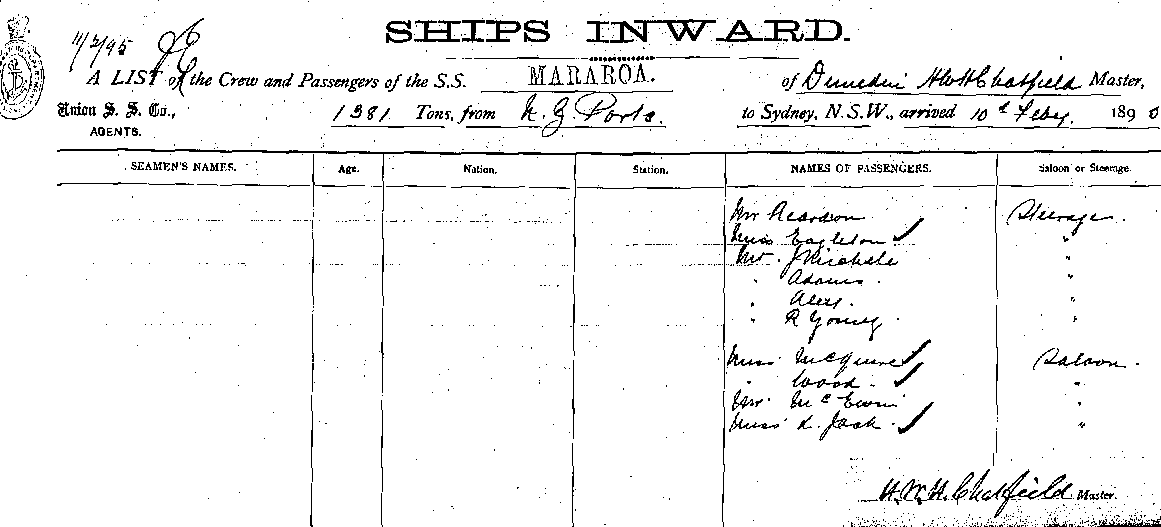 SHIPS INWARD.
11/2/95
A LIST of the Crew and Passengers of the S.S. MARAROA. of Dunedin H W H Chatfield Master,
Union S. S. Co., 1381 Tons, from N. Z Ports. to Sydney, N.S.W., arrived 10th Feby. 189
AGENTS.
SEAMEN'S NAMES. Age. Nation. Station. NAMES OF PASSENGERS. Saloon or Steerage.
Mr Reardon Steerage.
Miss Eagleton ✓ "
Mr. J Michele "
" Adams. "
" "
" R Young. "
Miss McGuire ✓ Saloon.
" Wood. ✓ "
Mr. McEwin "
Miss K. Jack. ✓ "
H.W.H. Chatfield Master.